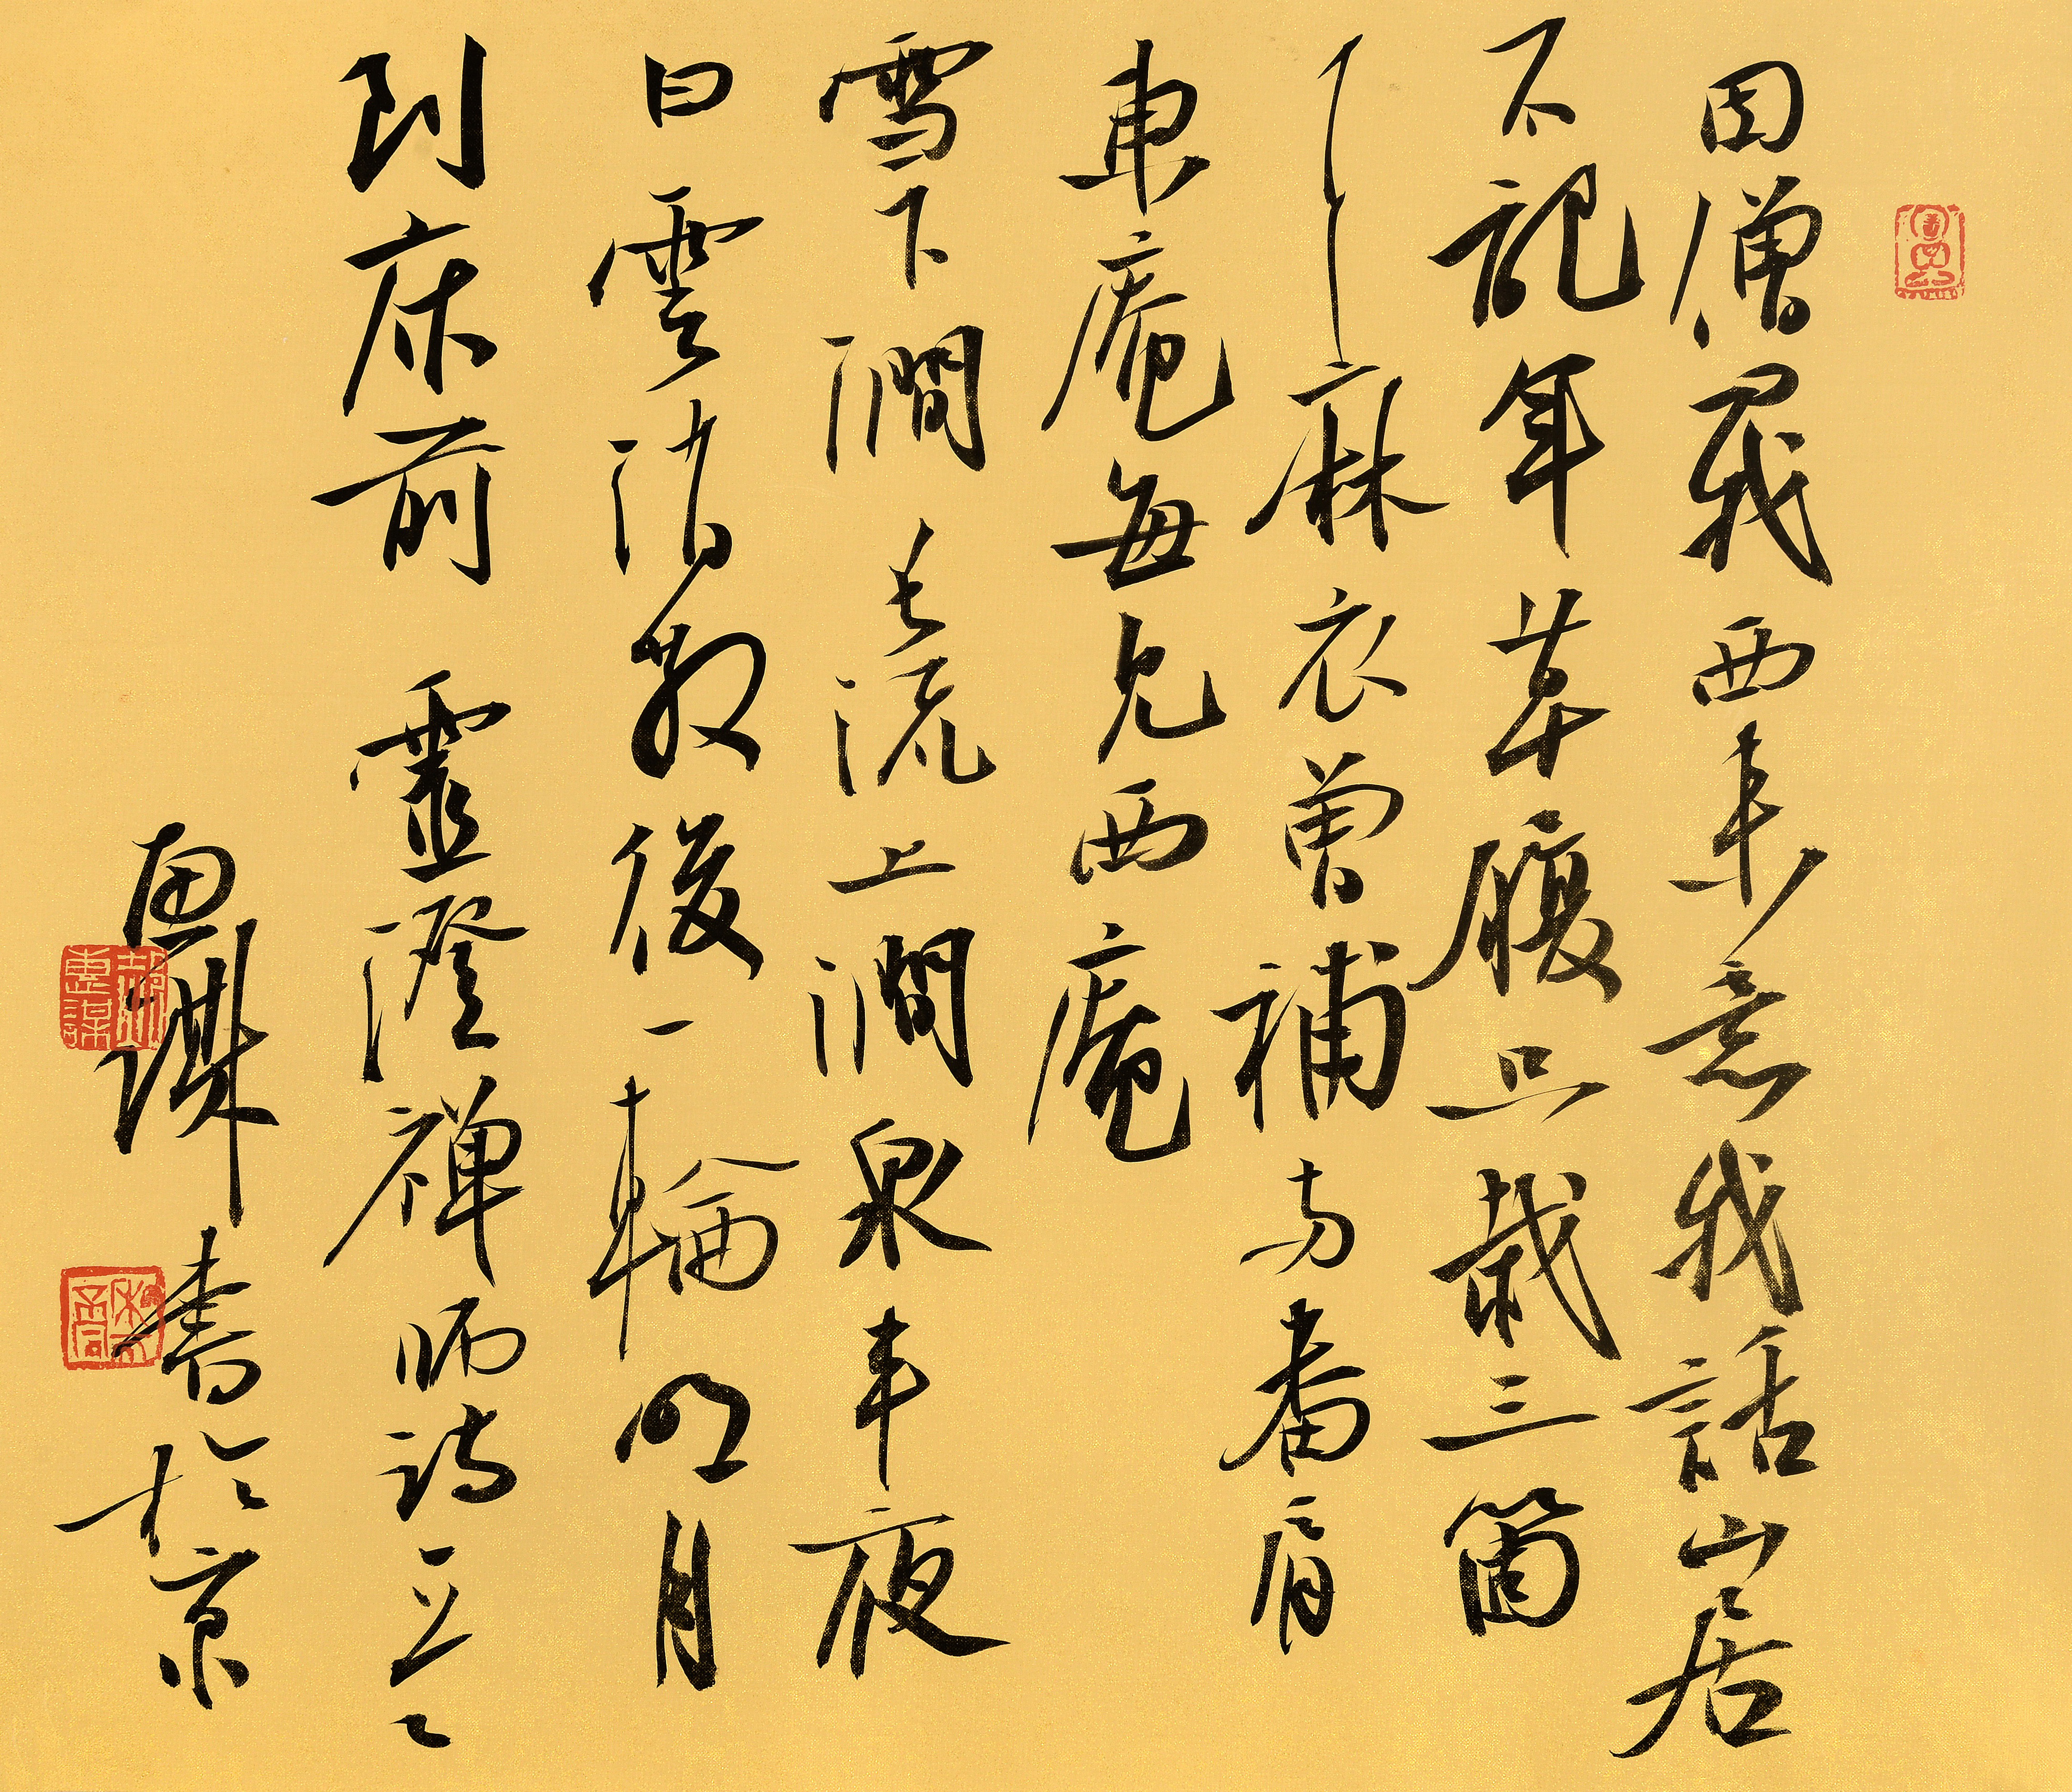 因僧問我西來意我話山居
不記年草履只栽三箇
耳麻衣曾補两番肩
東庵每見西庵
雪下澗長流上澗泉半夜
白雲消散後一輪明月
到床前 靈澄禪師詩
惠謀書於京